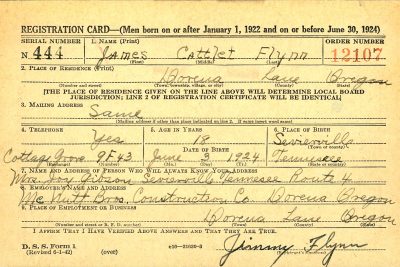 REGISTRATION CARD—(Men born on or after January 1, 1922 and on or before June 30, 1924)
SERIAL NUMBER 1. NAME (Print) ORDER NUMBER
N 444 James Cattlet Flynn 12107
(First) (Middle) (Last)
2. PLACE OF RESIDENCE (Print)
Dorena Lane Oregon
(Number and street) (Town, township, village, or city) (County) (State)
[THE PLACE OF RESIDENCE GIVEN ON THE LINE ABOVE WILL DETERMINE LOCAL BOARD
JURISDICTION; LINE 2 OF REGISTRATION CERTIFICATE WILL BE IDENTICAL]
3. MAILING ADDRESS
Same
[Mailing address if other than place indicated on line 2. If same insert word same]
4. TELEPHONE 5. AGE IN YEARS 6. PLACE OF BIRTH
Yes 18 Sevierville
DATE OF BIRTH (Town or county)
Cottage Grove 9F43 June 3 1924 Tennessee
(Exchange) (Number) (Mo.) (Day) (Yr.) (State or country)
7. NAME AND ADDRESS OF PERSON WHO WILL ALWAYS KNOW YOUR ADDRESS
Mrs. Sevierville Tennessee Route 4
8. EMPLOYER'S NAME AND ADDRESS
Mc Nutt Bros. Construction Co. Dorena Oregon
9. PLACE OF EMPLOYMENT OR BUSINESS
Dorena Lane Oregon
(Number and street or R. F. D. number) (Town) (County) (State)
I AFFIRM THAT I HAVE VERIFIED ABOVE ANSWERS AND THAT THEY ARE TRUE.
D. S. S. Form 1
(Revised 6-1-42) (over) Jimmy Flynn
(Registrant's signature)